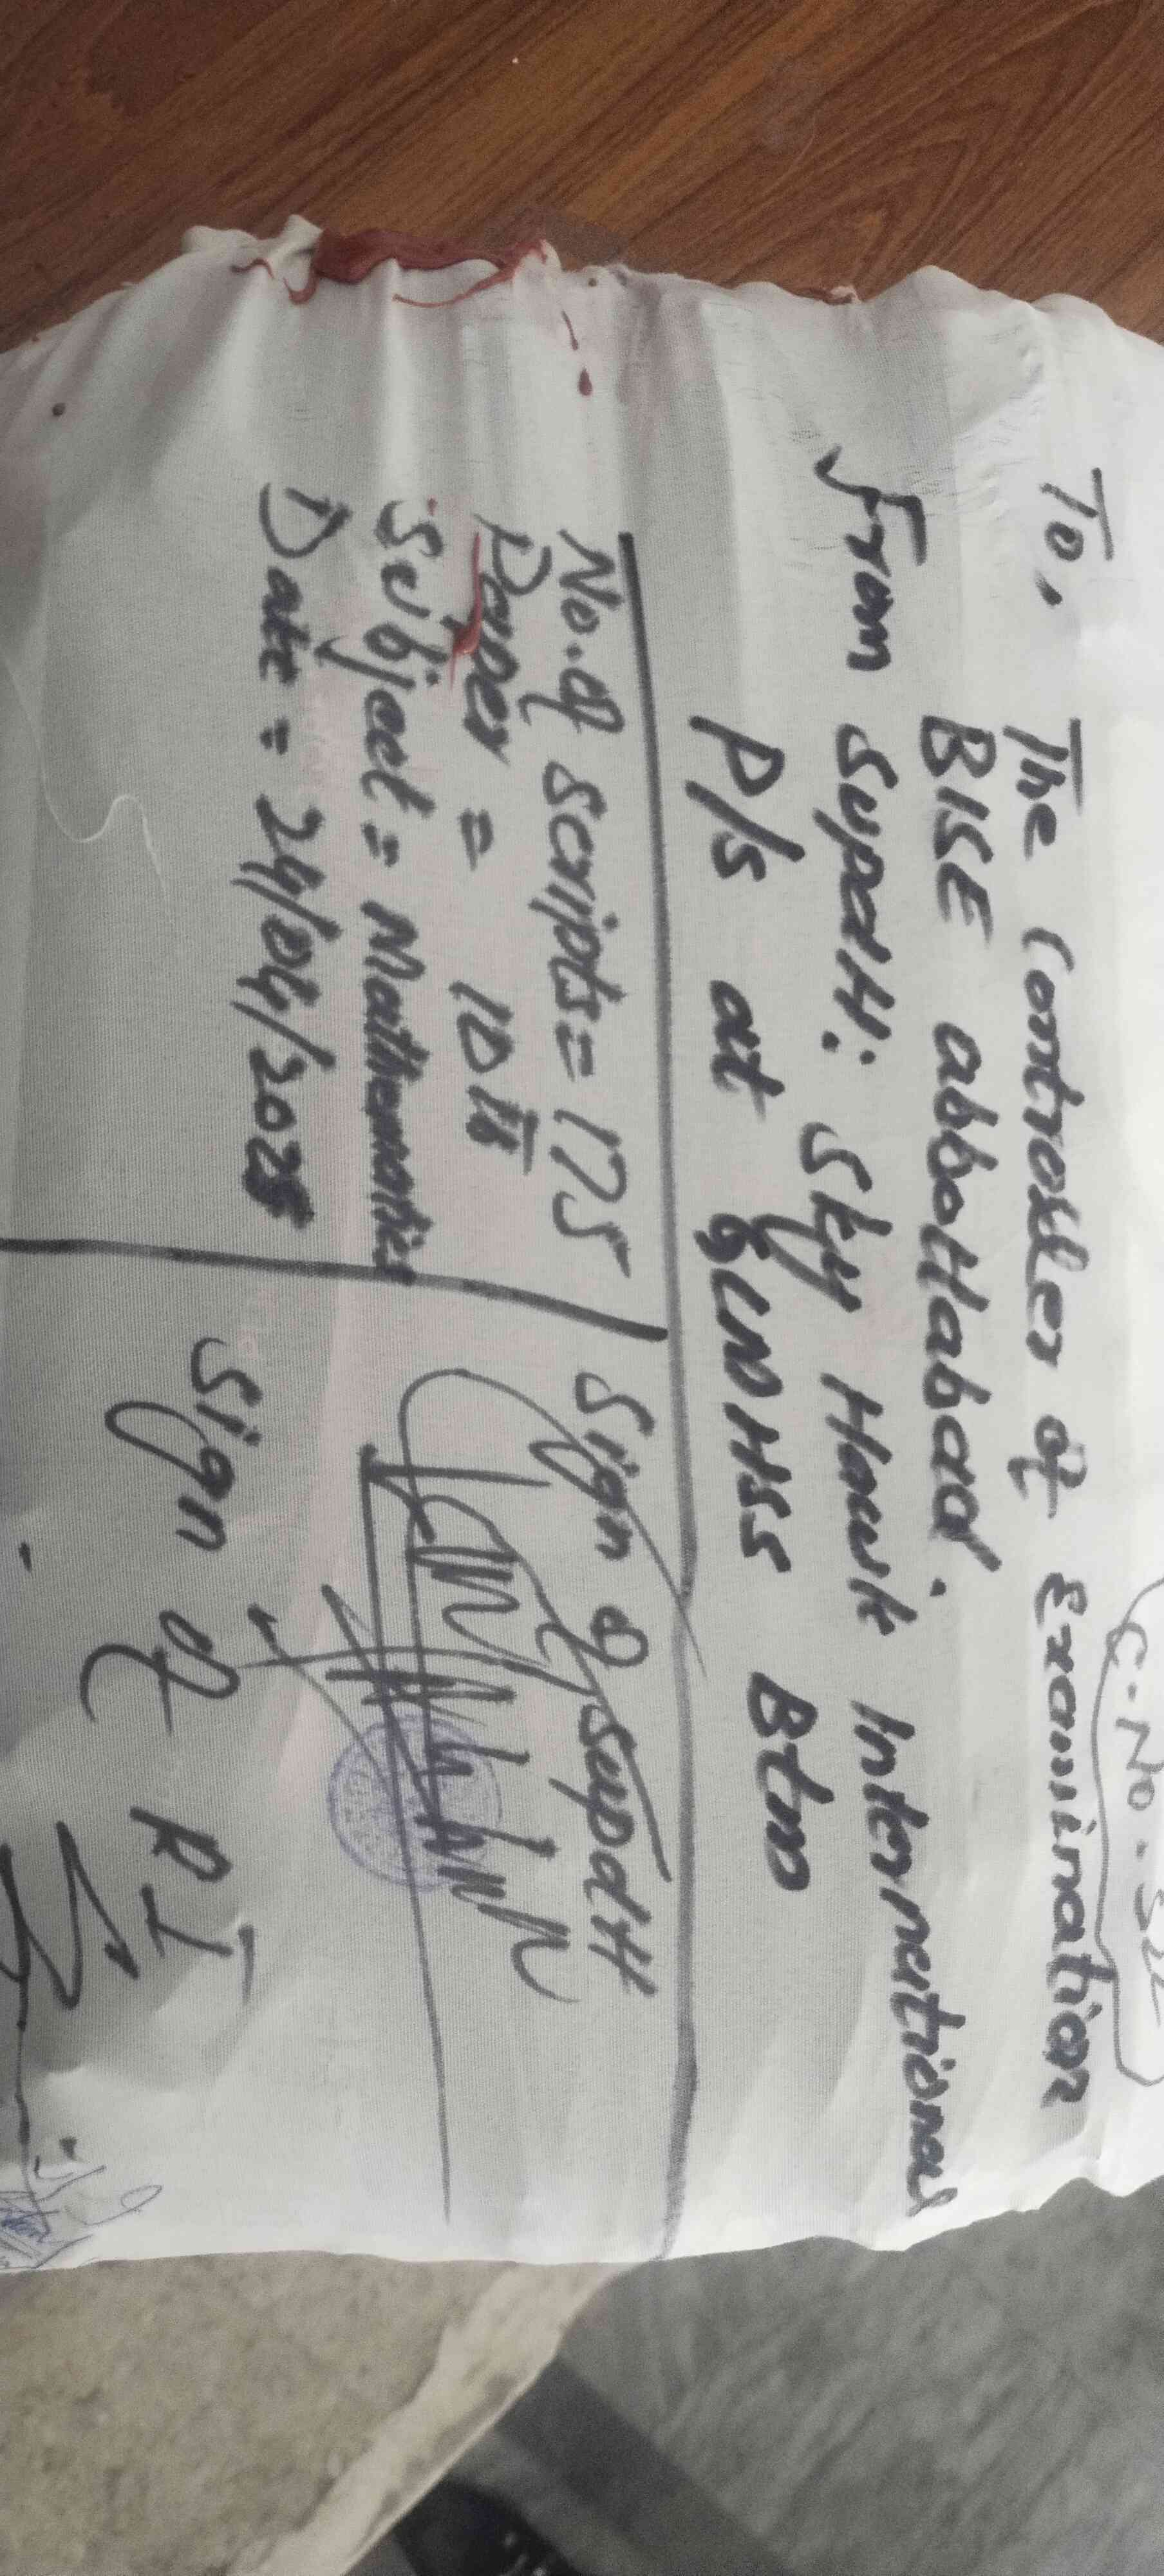 C.No.
To,
The Controller of Examination
BISE abbottabad.
From Supdtt: Sky Hawk International
P/s at GCMHSS Btm
No. of scripts = 175
Paper = 10th
Subject = Mathematics
Date = 24/04/2025
Sign of supdtt
Sign of RI